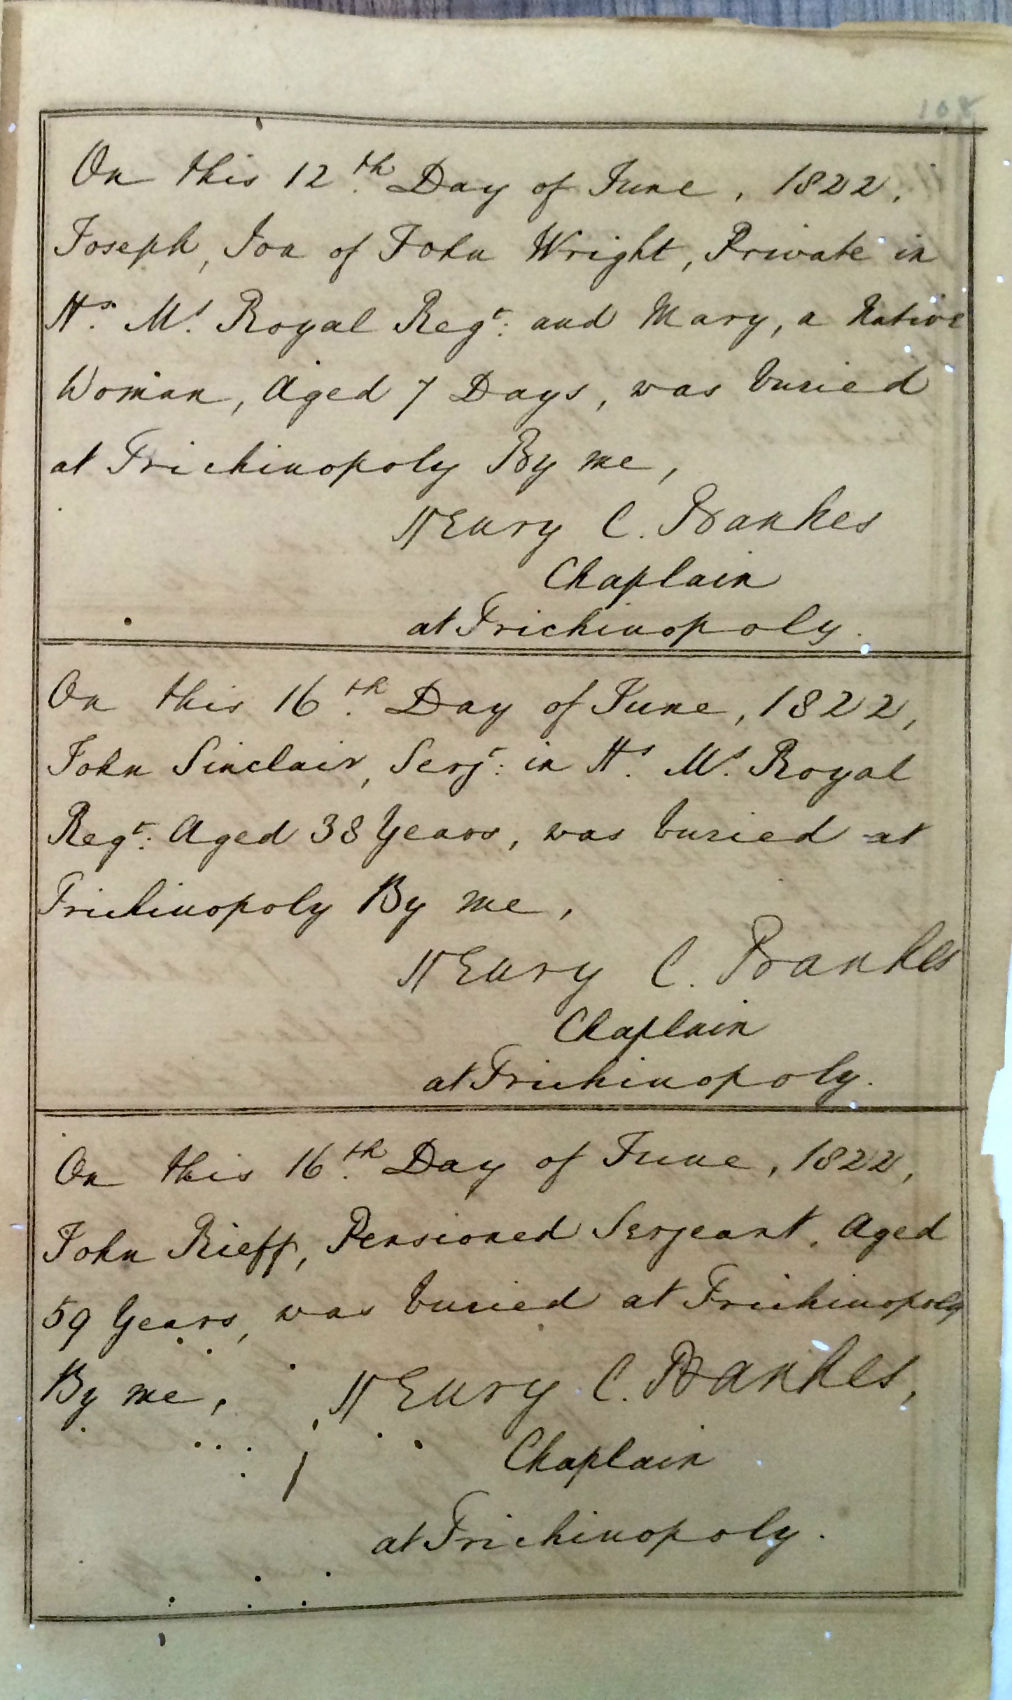 108
On this 12th Day of June, 1822,
Joseph, Son of John Wright, Private in
Hs. Ms. Royal Regt: and Mary, a Native
Woman, Aged 7 Days, was buried
at Trichinopoly By me,
Henry C. Bankes
Chaplain
at Trichinopoly.
On this 16th Day of June, 1822,
John Sinclair, Serjt: in Hs. Ms. Royal
Regt: Aged 38 Years, was buried at
Trichinopoly By me,
Henry C. Bankes
Chaplain
at Trichinopoly.
On this 16th Day of June, 1822,
John Rieff, Pensioned Serjeant, Aged
59 Years, was buried at Trichinopoly
By me, Henry C. Bankes,
Chaplain
at Trichinopoly.